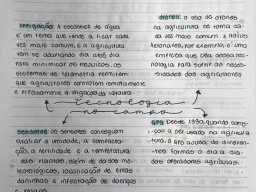 irrigação: A escassez de água
é um tema que tende a ficar cada
vez mais comum, e a agricultura
vem se adaptando dia após dia
para minimizar os resultados. Os
sistemas de telemetria permitem
que agricultores controlem remotamente
e precisamente a irrigação da lavoura
drones: o uso de drones
na agricultura se torna ca-
da vez mais comum. A nativa
Aeronautas, por exemplo, é uma
empresa que usa dessa tec-
nologia para suprir as neces-
sidades dos agricultores
tecnologia
no campo
sensores: os sensores conseguem
avaliar a umidade, a compacta-
ção, a fertilidade e a temperatura
das plantas, além de dados me-
teorológicos, localização de ervas
daninhas e infestação de doenças
e pragas
GPS: Desde 1990, quando come-
çou a ser usado na agricultu-
ra, o GPS ajuda de diversas
formas o dia a dia
dos operadores agrícolas